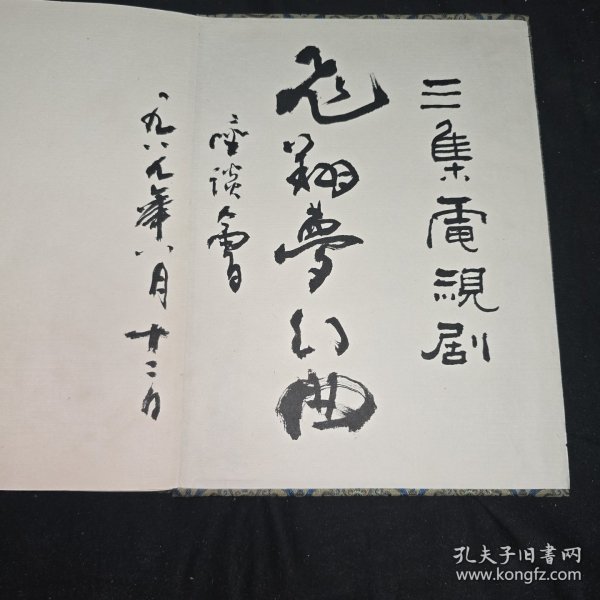 三集電視剧
飞翔夢幻曲
座谈會
一九八九年八月十二日
孔夫子旧書网
www.kongfz.com